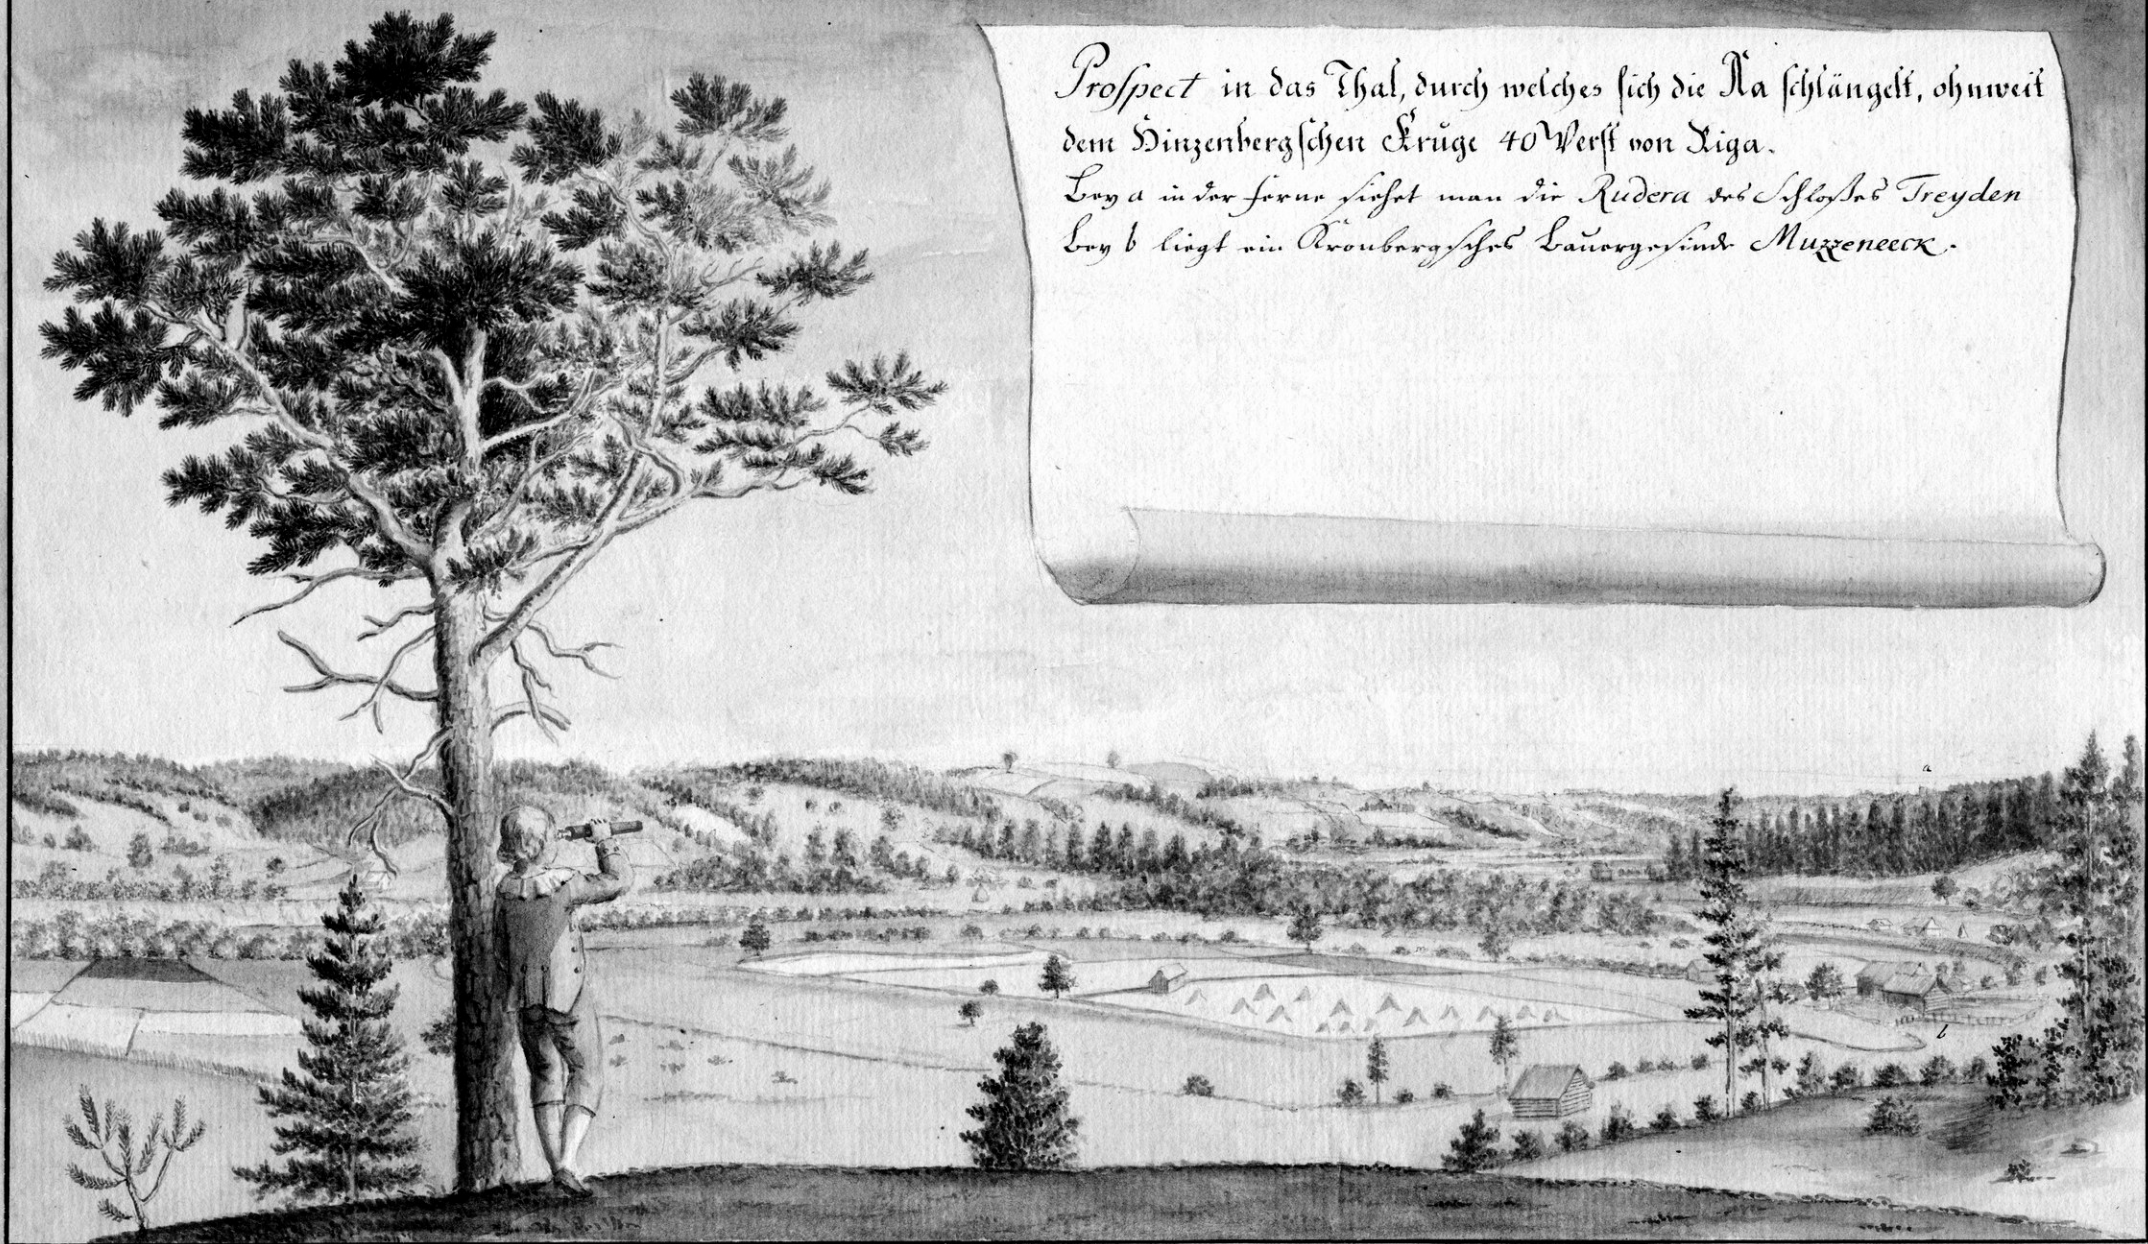 Prospect in das Thal, durch welches sich die Aa schlängelt, ohnweit
dem Hinzenbergschen Kruge 40 Werst von Riga.
Bey a in der ferne siehet man die Rudera des Schloßes Treyden
Bey b liegt ein Kronbergsches Bauergesinde Muzzeneeck.
a
b